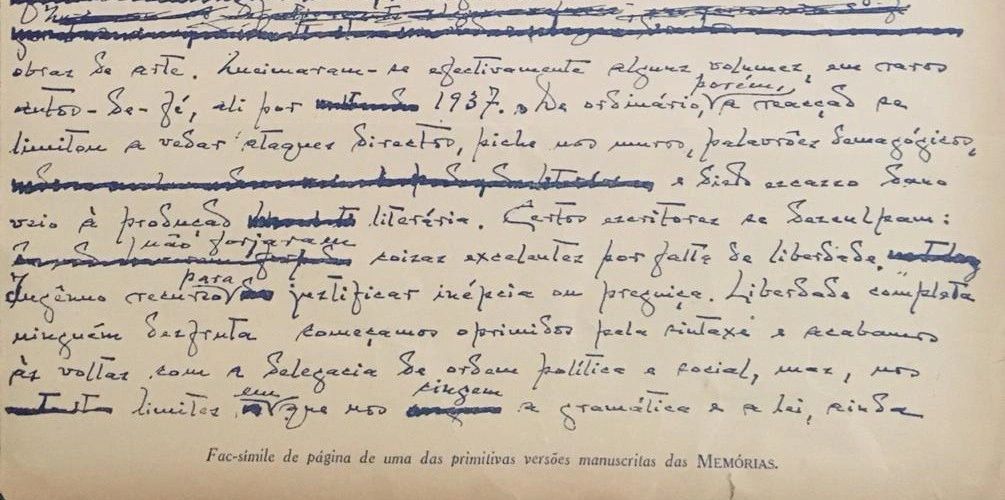 obras de arte. Queimaram-se efectivamente alguns volumes, em raros
autos-de-fé, ali por 1937. De ordinário, porém, a reacção se
limitou a vedar ataques directos, piche nos muros, palavrões demagógicos,
e disto escasso dano
veio à produção literária. Certos escritores se desculpam:
não forjaram coisas excelentes por falta de liberdade.
Ingênuo recurso para justificar inépcia ou preguiça. Liberdade completa
ninguém desfruta começamos oprimidos pela sintaxe e acabamos
às voltas com a Delegacia de ordem política e social, mas, nos
limites em que nos cingem a gramática e a lei, ainda
Fac-símile de página de uma das primitivas versões manuscritas das MEMÓRIAS.